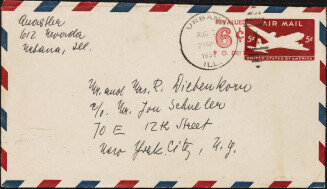 Quastler
612 Nevada
Urbana, Ill.
URBANA
AUG
ILL.
REVALUED
6¢
P. O. DEPT.
AIR MAIL
5¢ 5¢
UNITED STATES OF AMERICA
Mr. and Mrs. R. Diebenkorn
c/o Mr. Jon Schueler
70 E 12th Street
New York City, N.Y.